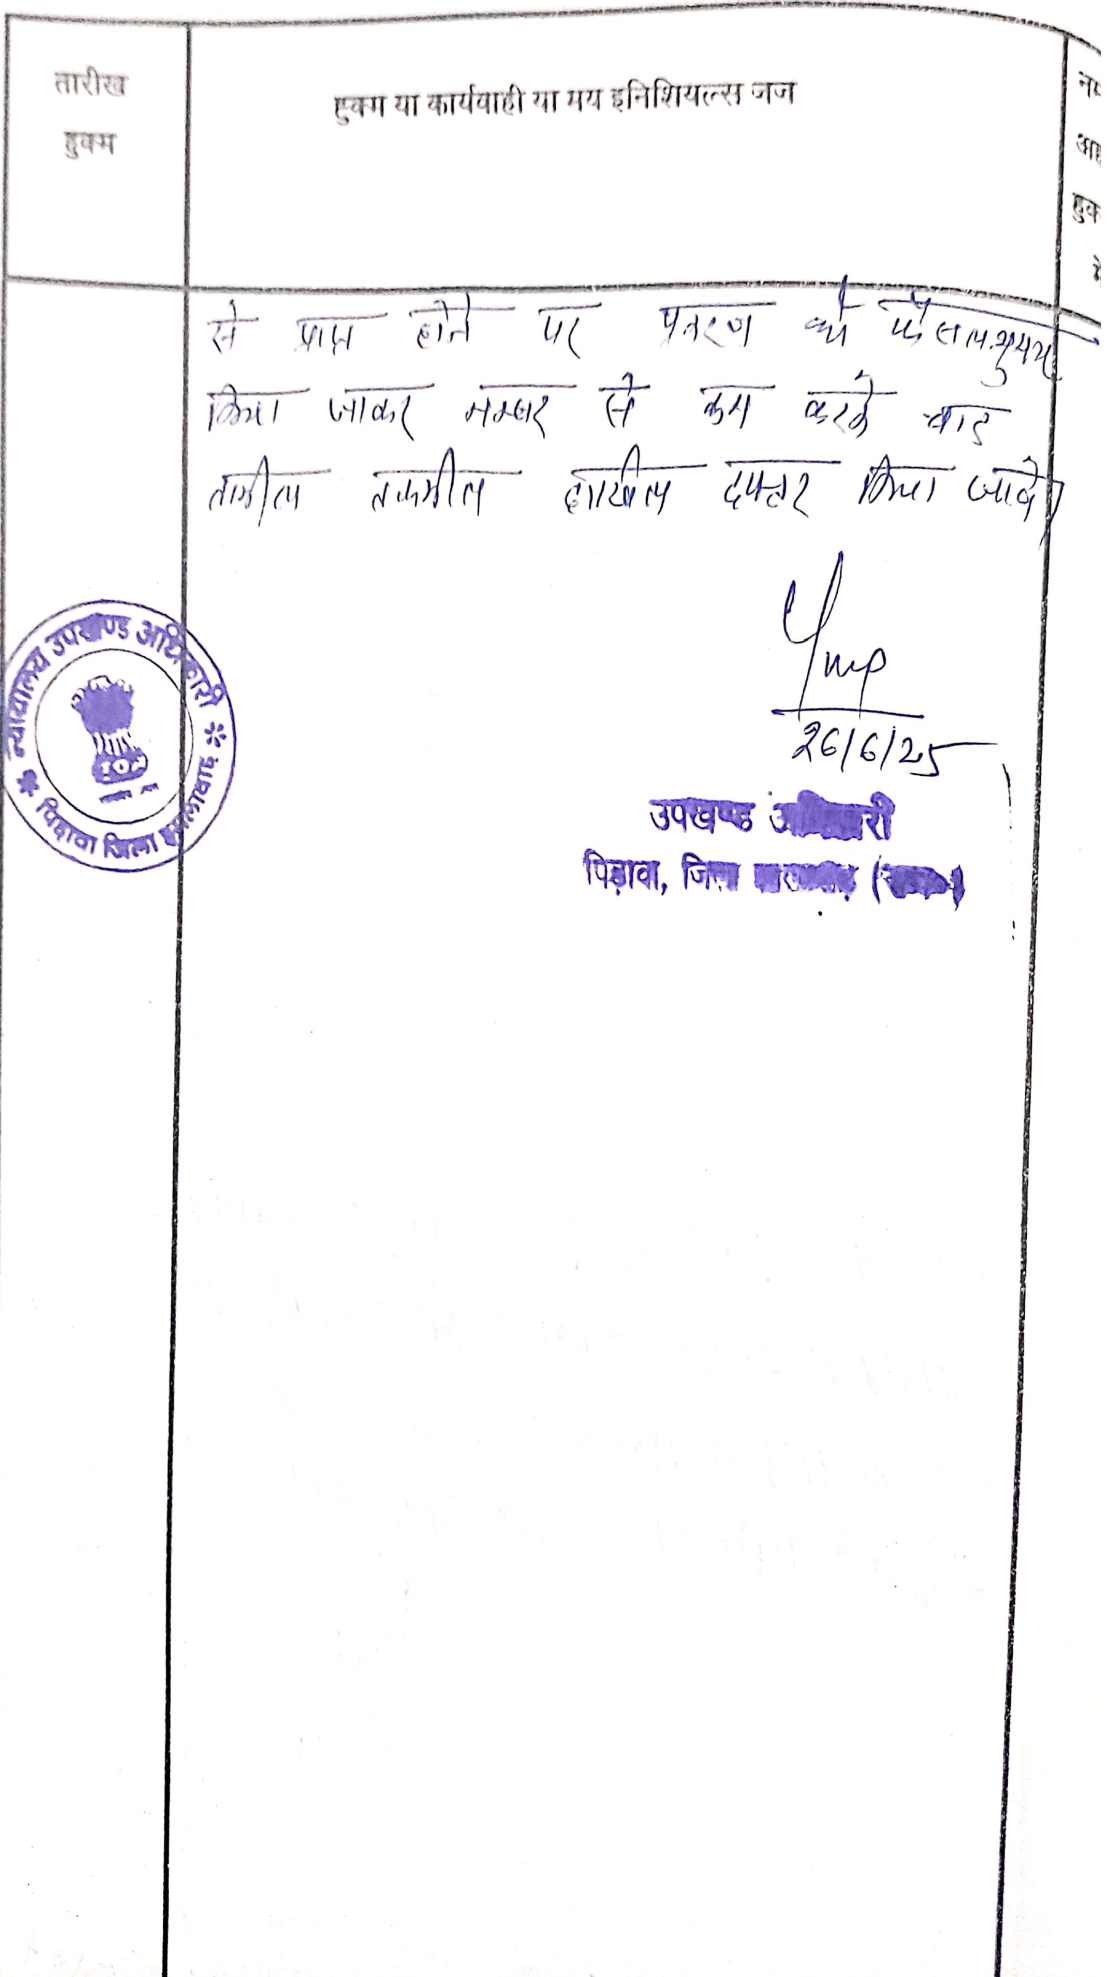 तारीख
हुक्म
हुक्म या कार्यवाही या मय इनिशियल्स जज
हुक
से प्राप्त होने पर प्रकरण को फैसल शुमार
किया जाकर नम्बर से कम करके बाद
तामील तकमील दाखिल दफ्तर किया जावे।
26/6/25
न्यायालय उपखण्ड अधिकारी
पिडावा जिला झालावाड़
उपखण्ड अधिकारी
पिड़ावा, जिला